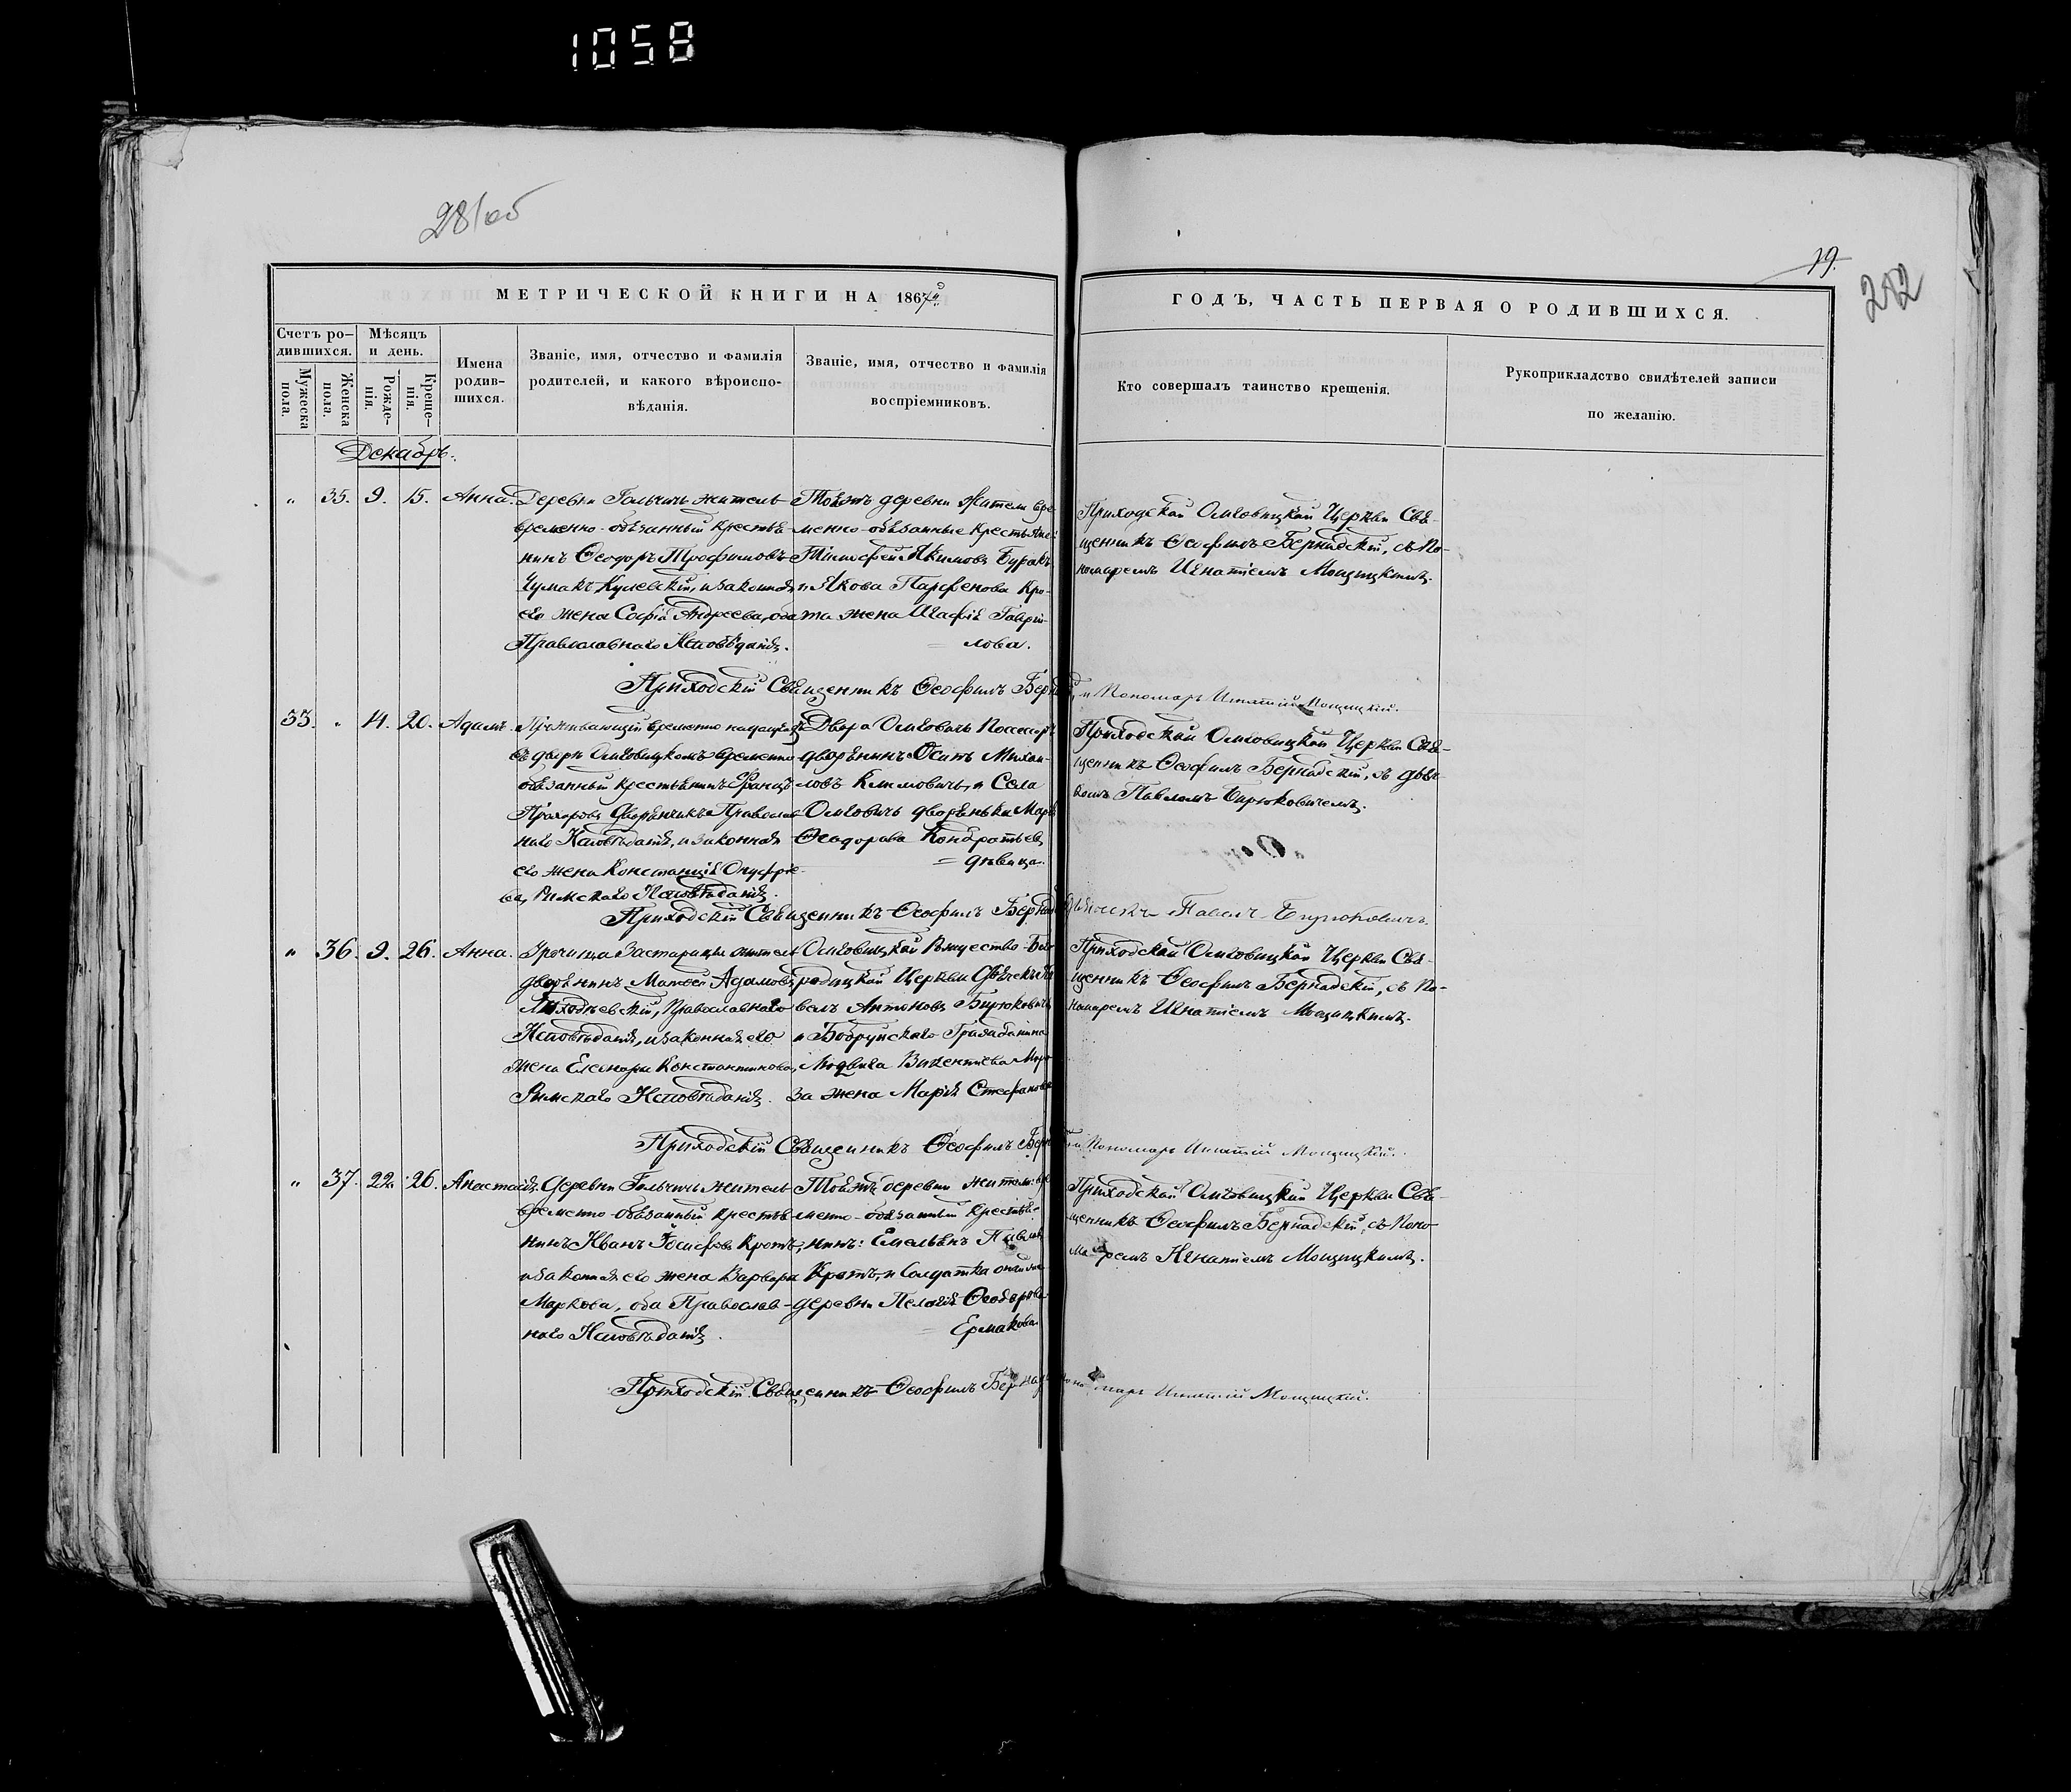 1058
28/об
19.
282
МЕТРИЧЕСКОЙ КНИГИ НА 1867й
ГОДЪ, ЧАСТЬ ПЕРВАЯ О РОДИВШИХСЯ.
Счетъ ро-
дившихся.
Мужеска
пола.
Женска
пола.
Мѣсяцъ
и день.
Рожде-
нія.
Креще-
нія.
Имена
родив-
шихся.
Званіе, имя, отчество и фамилія
родителей, и какого вѣроиспо-
вѣданія.
Званіе, имя, отчество и фамилія
воспріемниковъ.
Кто совершалъ таинство крещенія.
Рукоприкладство свидѣтелей записи
по желанію.
Декабрь.
„ 35. 9. 15. Анна.
Деревни житель
временно-обязанный крестья-
нинъ Ѳеодоръ Трофимовъ
Чумакъ и законная
его жена Софія Андреева, оба
Православнаго Исповѣданія.
Тойже деревни жители вре-
менно-обязанные крестьяне:
Тимофей Якимовъ Буракъ
и Якова Парфенова Кро-
та жена Агафія Гаврі-
лова.
Приходской Омговицкой Церкви Свя-
щенникъ Ѳеофилъ Бернадскій, съ По-
номаремъ Игнатіемъ Мощицкимъ.
Приходскій Священникъ Ѳеофилъ
и Пономарь Игнатій Мощицкій.
33. „ 14. 20. Адамъ.
Проживающій временно
въ дворѣ Омговицкомъ временно
обязанный крестьянинъ Францъ
Прохоровъ Православ-
наго Исповѣданія, и законная
его жена Констанція Онуфріе-
ва, Римскаго Исповѣданія.
Двора Омговичъ Поссессоръ
дворянинъ Осипъ Михай-
ловъ Климовичъ, и Села
Омговичъ дворянка Марія
Ѳеодорова Кондратьева,
дѣвица.
Приходской Омговицкой Церкви Свя-
щенникъ Ѳеофилъ Бернадскій, съ дья-
комъ Павломъ Бирюковичемъ.
Приходскій Священникъ Ѳеофилъ
Павелъ Бирюковичъ.
„ 36. 9. 26. Анна.
Урочища житель
дворянинъ Матѳей Адамовъ
Православнаго
Исповѣданія, и законная его
жена Елеонора Константинова,
Римскаго Исповѣданія.
Омговицкой Рождество-Бого-
родицкой Церкви Дьячекъ Па-
велъ Антоновъ Бирюковичъ
и Бобруйскаго Гражданина
Людвига Викентіева Моро-
за жена Марія Стефанова
Приходской Омговицкой Церкви Свя-
щенникъ Ѳеофилъ Бернадскій, съ По-
номаремъ Игнатіемъ Мощицкимъ.
Приходскій Священникъ Ѳеофилъ
Пономарь Игнатій Мощицкій.
„ 37. 22. 26. Анастасія.
Деревни житель
временно-обязанный крестья-
нинъ Иванъ Іосифовъ Кротъ,
и законная его жена Варвара
Маркова, оба Православ-
наго Исповѣданія.
Тойже деревни житель вре-
менно-обязанный крестья-
нинъ: Емельянъ Павловъ
Кротъ, и Солдатка оной же
деревни Пелагія Ѳеодорова
Ермакова.
Приходской Омговицкой Церкви Свя-
щенникъ Ѳеофилъ Бернадскій, съ Поно-
маремъ Игнатіемъ Мощицкимъ.
Приходскій Священникъ Ѳеофилъ
Игнатій Мощицкій.